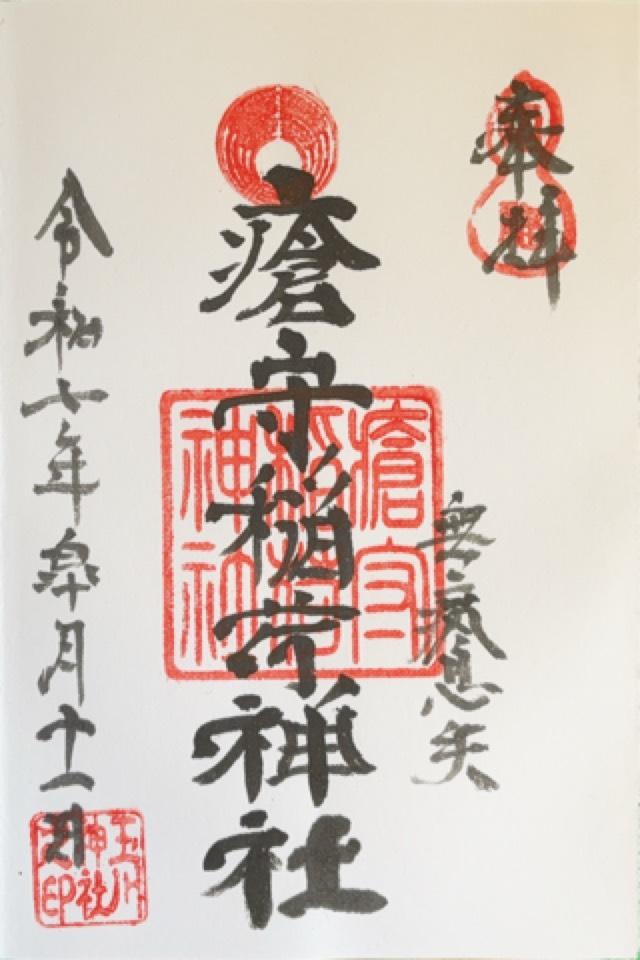 奉拝
無病息災
瘡守稲荷神社
瘡守稲荷神社
令和七年皐月十一日
玉川神社之印